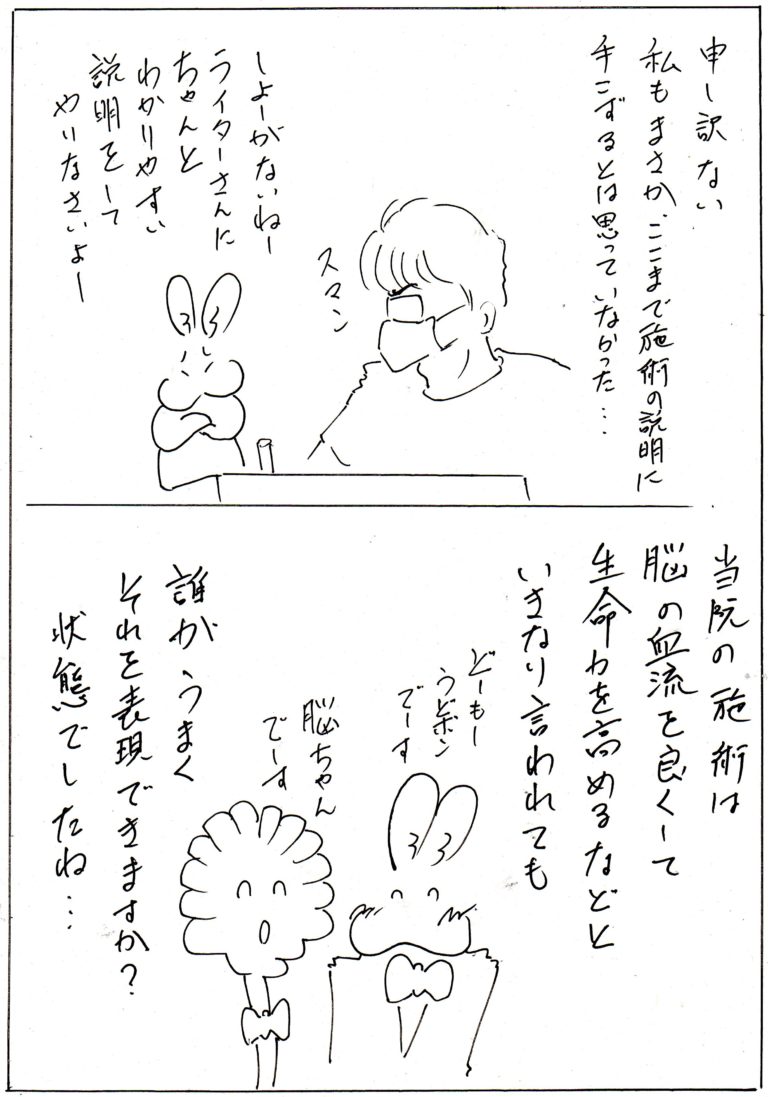 申し訳ない
私もまさか、ここまで施術の説明に
手こずるとは思っていなかった…
スマン
しょーがないねー
ライターさんに
ちゃんと
わかりやすい
説明をして
やりなさいよー
当院の施術は
脳の血流を良くして
生命力を高めるなどと
いきなり言われても
どーもー
うどポン
でーす
脳ちゃん
でーす
誰がうまく
それを表現できますか？
状態でしたね…